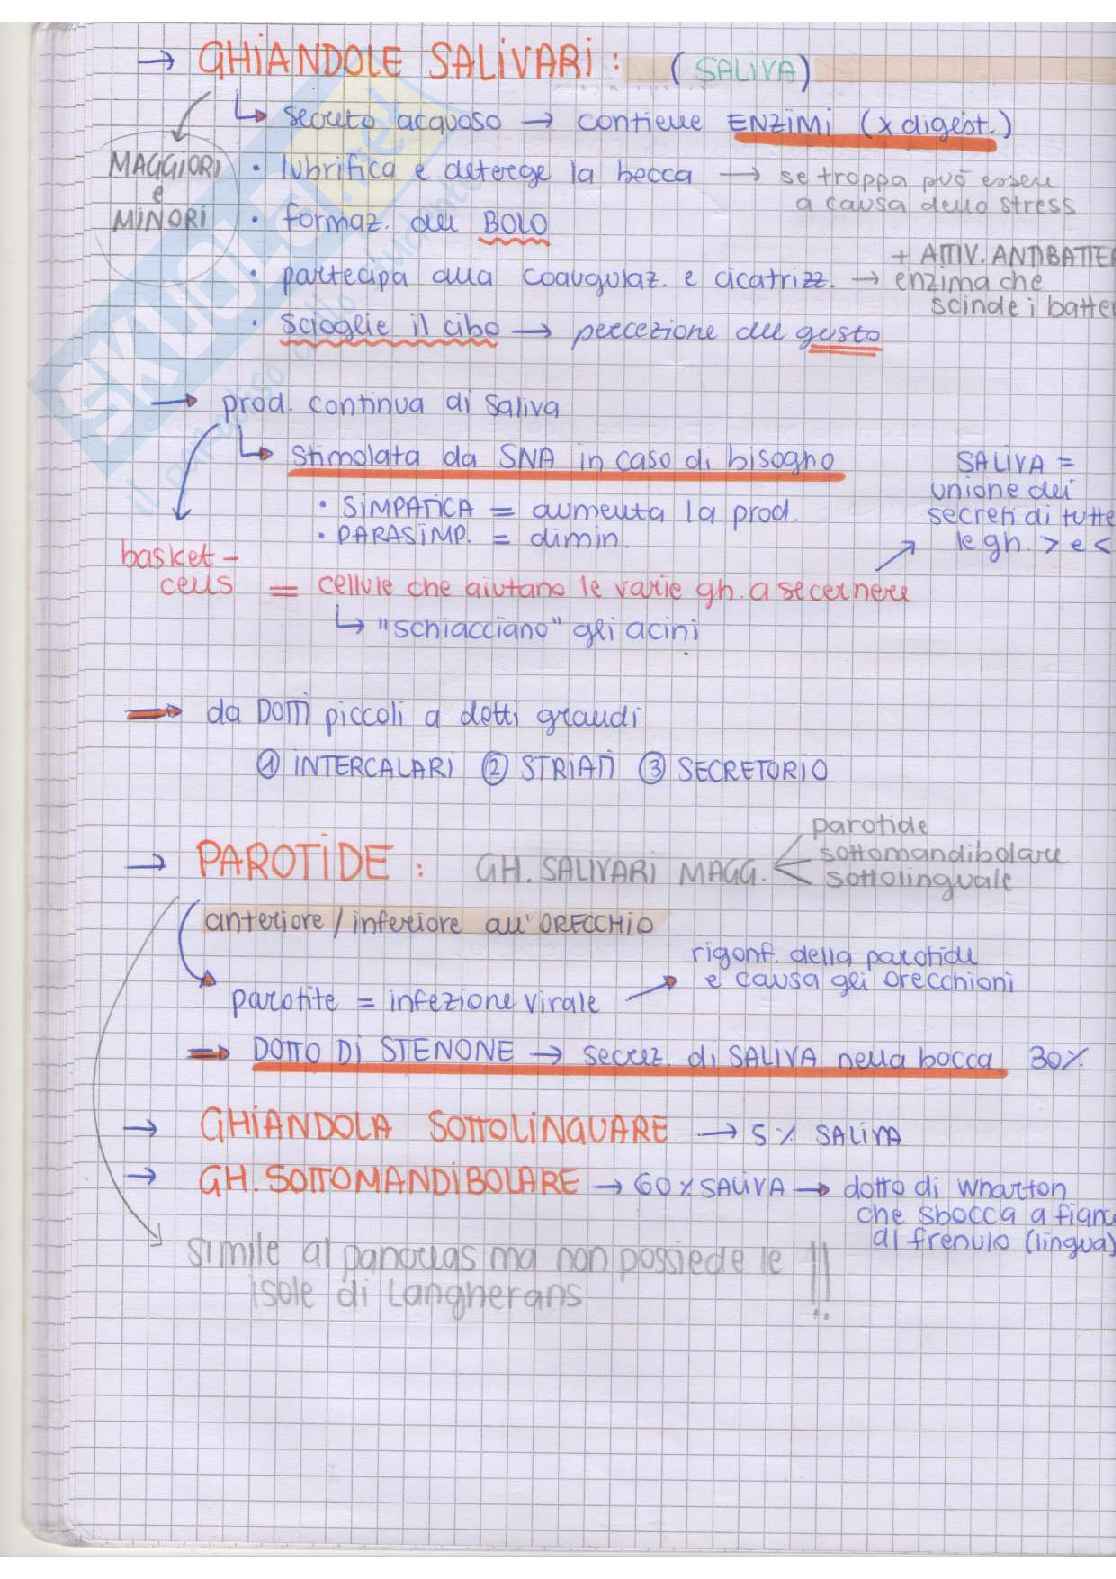 → GHIANDOLE SALIVARI : (SALIVA)
↳ secreto acquoso → contiene ENZIMI (x digest.)
MAGGIORI e MINORI
• lubrifica e deterge la bocca → se troppa può essere
a causa dello stress
• formaz. del BOLO
• partecipa alla coaugulaz. e cicatrizz. → + ATTIV. ANTIBATTER
enzima che
scinde i batter
• scioglie il cibo → percezione del gusto
→ prod. continua di saliva
↳ stimolata da SNA in caso di bisogno
• SIMPATICA = aumenta la prod.
• PARASIMP. = dimin.
SALIVA =
unione dei
secreti di tutte
le gh. > e <
basket-
cells = cellule che aiutano le varie gh. a secernere
↳ "schiacciano" gli acini
→ da DOTTI piccoli a dotti grandi
① INTERCALARI ② STRIATI ③ SECRETORIO
→ PAROTIDE : GH. SALIVARI MAGG.
parotide
sottomandibolare
sottolinguale
anteriore / inferiore all'ORECCHIO
parotite = infezione virale → rigonf. della parotide
e causa gli orecchioni
⇒ DOTTO DI STENONE → secrez. di SALIVA nella bocca 30%
→ GHIANDOLA SOTTOLINGUARE → 5% SALIVA
→ GH. SOTTOMANDIBOLARE → 60% SALIVA → dotto di Wharton
che sbocca a fianc
al frenulo (lingua)
simile al pancreas ma non possiede le
isole di Langherans !!